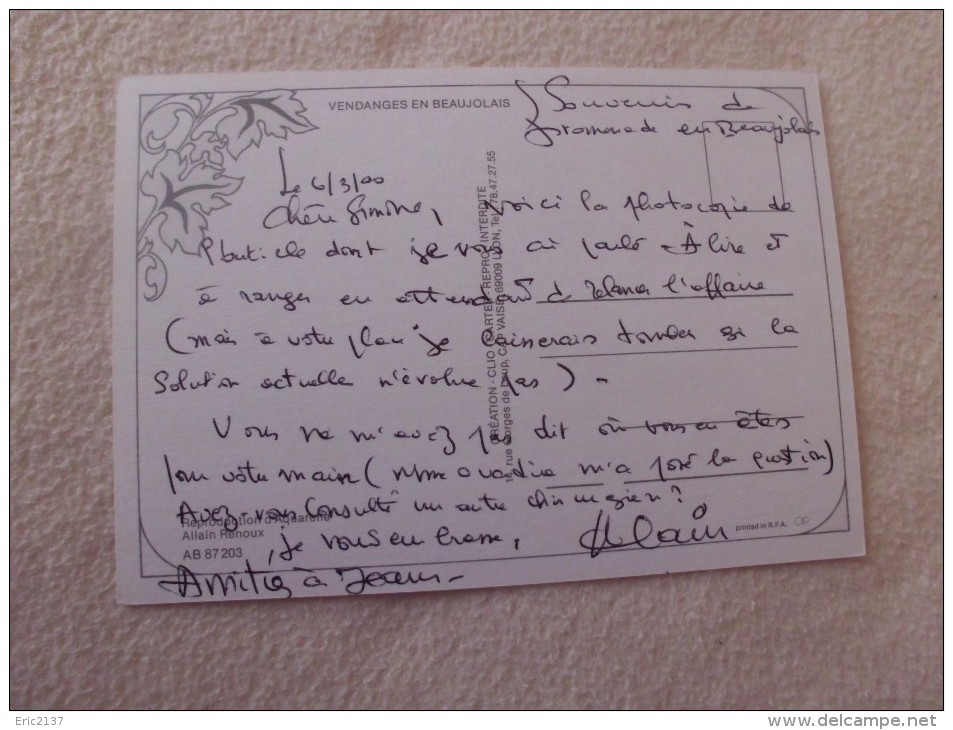 VENDANGES EN BEAUJOLAIS
Souvenirs de
promenade en Beaujolais
Le 6/3/00
Chère Simone, voici la photocopie de
l'article dont je vous ai parlé - À lire et
à ranger en attendant d l'affaire
(mais à votre place je laisserais tomber si la
solution actuelle n'évolue pas) -
Vous ne m'avez pas dit où vous en êtes
pour votre main (Mme m'a posé la question)
Avez-vous consulté un autre chirurgien?
je vous embrasse, Alain
Amitiés à Jean -
CRÉATION - CLIO CARTES REPRO INTERDITE
16, rue Gorges de Loup, CAP VAISE 69009 LYON, Tel. 78.47.27.55
Reproduction d'Aquarelle
Allain Renoux
AB 87 203
printed in R.F.A.
Eric2137
delcampe.net